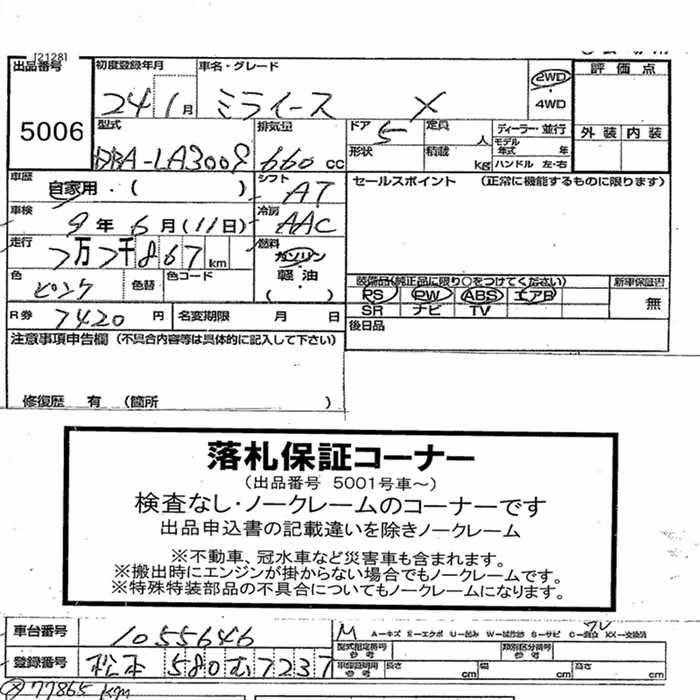 [2128]
出品番号 初度登録年月 車名・グレード 2WD 評価点
5006 24 1月 ミライース X 4WD
型式 排気量 ドア 5 定員 人 ディーラー・並行 外装 内装
DBA-LA300S 660 cc 形状 積載 kg モデル年式 年 ハンドル 左・右
車歴 自家用・( ) シフト AT セールスポイント (正常に機能するものに限ります)
車検 9年 6月(11日) 冷房 AAC
走行 7万7千867km 燃料 ガソリン
色 ピンク 色替 色コード 軽・油 ( ) 装備品(純正品に限り○をつけてください) 新車保証書
PS PW ABS エアB 無
R券 7420 円 名変期限 月 日 SR ナビ TV
注意事項申告欄 (不具合内容等は具体的に記入して下さい) 後日品
修復歴 有 (箇所 )
落札保証コーナー
(出品番号 5001号車～)
検査なし・ノークレームのコーナーです
出品申込書の記載違いを除きノークレーム
※不動車、冠水車など災害車も含まれます。
※搬出時にエンジンが掛からない場合でもノークレームです。
※特殊特装部品の不具合についてもノークレームになります。
車台番号 1055646 M A-キズ E-エクボ U-凹み S-サビ XX-交換済
登録番号 松本 580 む 7237 型式指定番号参考 類別区分番号参考
車庫証明用参考 長さ cm 幅 cm 高さ cm
77865 km